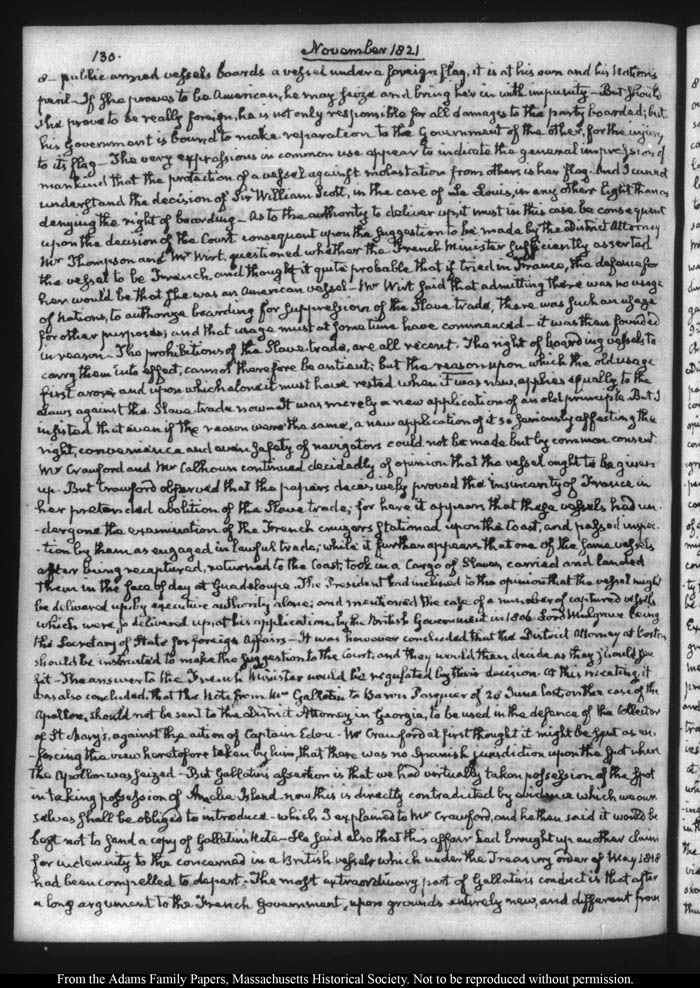 130.
November 1821
a public armed vessels boards a vessel under a foreign flag, it is at his own and his Nation's
peril - If she proves to be American, he may seize and bring her in with impunity - But should
she prove to be really foreign, he is not only responsible for all damages to the party boarded; but
his Government is bound to make reparation to the Government of the other, for the injury
to its flag - The very expressions in common use appear to indicate the general impression of
mankind that the protection of a vessel against molestation from others is her flag. And I cannot
understand the decision of Sir William Scott, in the case of Le Louis, in any other light than as
denying the right of boarding - As to the authority to deliver up, it must in this case be consequent
upon the decision of the Court consequent upon the suggestion to be made by the District Attorney
Mr Thompson and Mr Wirt, questioned whether the French Minister sufficiently asserted
the vessel to be French, and thought it quite probable that if tried in France, the defence for
her would be that she was an American vessel - Mr Wirt said that admitting there was no usage
of Nations, to authorize boarding for suppression of the Slave trade, there was such an usage
for other purposes; and that usage must at some time have commenced - it was then founded
in reason - The prohibitions of the Slave trade, are all recent. The right of boarding vessels to
carry them into effect, cannot therefore be antient; but the reason upon which the old usage
first arose, and upon which alone it must have rested when it was new, applies equally to the
Laws against the Slave trade now - It was merely a new application of an old principle. But I
insisted that even if the reason were the same, a new application of it so seriously affecting the
right, convenience and even safety of navigators could not be made but by common consent.
Mr Crawford and Mr Calhoun continued decidedly of opinion that the vessel ought to be given
up. But Crawford observed that the papers decisively proved the insincerity of France in
her pretended abolition of the Slave trade; for here it appears that these vessels had un-
-dergone the examination of the French cruizers stationed upon the Coast, and passed inspec-
-tion by them as engaged in lawful trade; while it further appears that one of the same vessels
after being recaptured, returned to the Coast, took in a Cargo of Slaves, carried and landed
them in the face of day at Guadeloupe. The President had inclined to the opinion that the vessel might
be delivered up by executive authority alone; and mentioned the case of a number of captured vessels
which were so delivered up, at his application, by the British Government in 1806. Lord Mulgrave being
the Secretary of State for foreign Affairs - It was however concluded that the District Attorney at Boston,
should be instructed to make the suggestion to the Court, and they would then decide as they should see
fit - The answer to the French Minister would be regulated by their decision. At this meeting, it
was also concluded, that the Note from Mr Gallatin to Baron Pasquier of 28 June last, on the case of the
Apollon, should not be sent to the District Attorney in Georgia, to be used in the defence of the Collector
of St Mary's, against the action of Captain Edou - Mr Crawford at first thought it might be sent as en-
-forcing the view heretofore taken by him, that there was no Spanish jurisdiction upon the Spot where
the Apollon was seized - But Gallatin's assertion is that we had virtually taken possession of the Spot
in taking possession of Amelia Island - now this is directly contradicted by evidence which we our-
selves shall be obliged to introduce - which I explained to Mr Crawford, and he then said it would be
best not to send a copy of Gallatin's Note - He said also that this affair had brought up another claim
for indemnity to the concerned in a British vessel which under the Treasury order of May 1818
had been compelled to depart - The most extraordinary part of Gallatin's conduct is that after
a long argument to the French Government, upon grounds entirely new, and different from
From the Adams Family Papers, Massachusetts Historical Society. Not to be reproduced without permission.